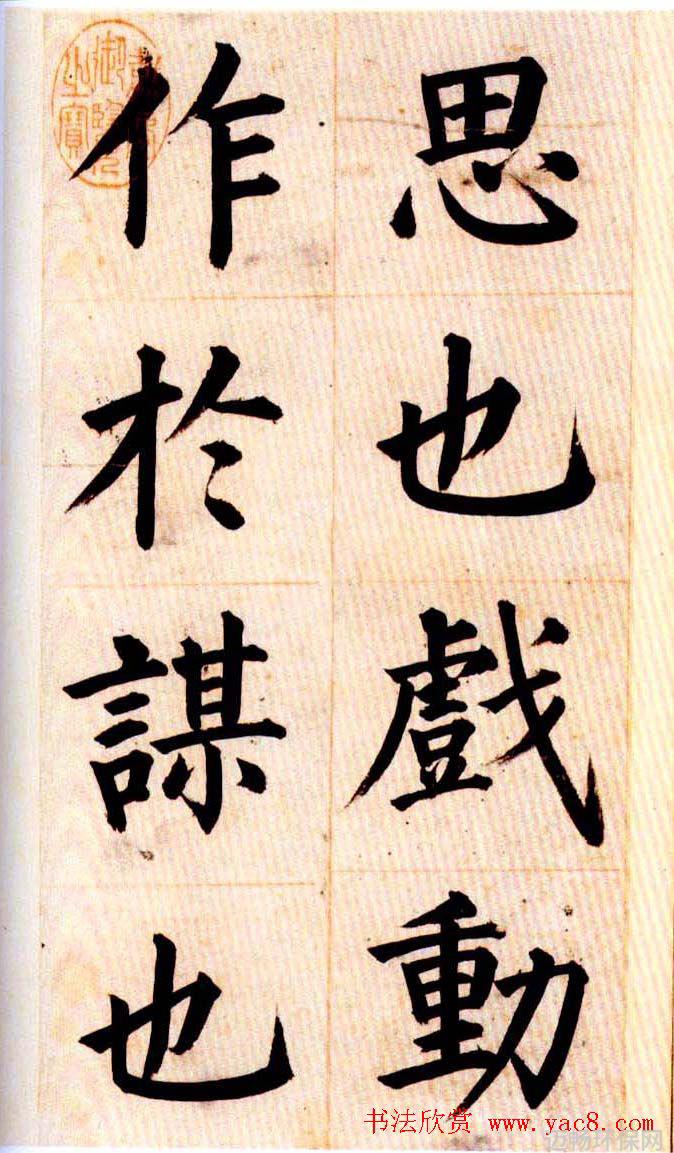 思也戲動
作於謀也
书法欣赏 www.yac8.com
迈畅环保网